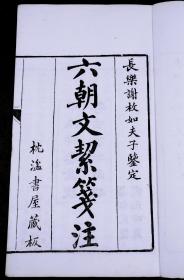 長樂謝枚如夫子鑒定
六朝文絜箋注
枕湓書屋藏板